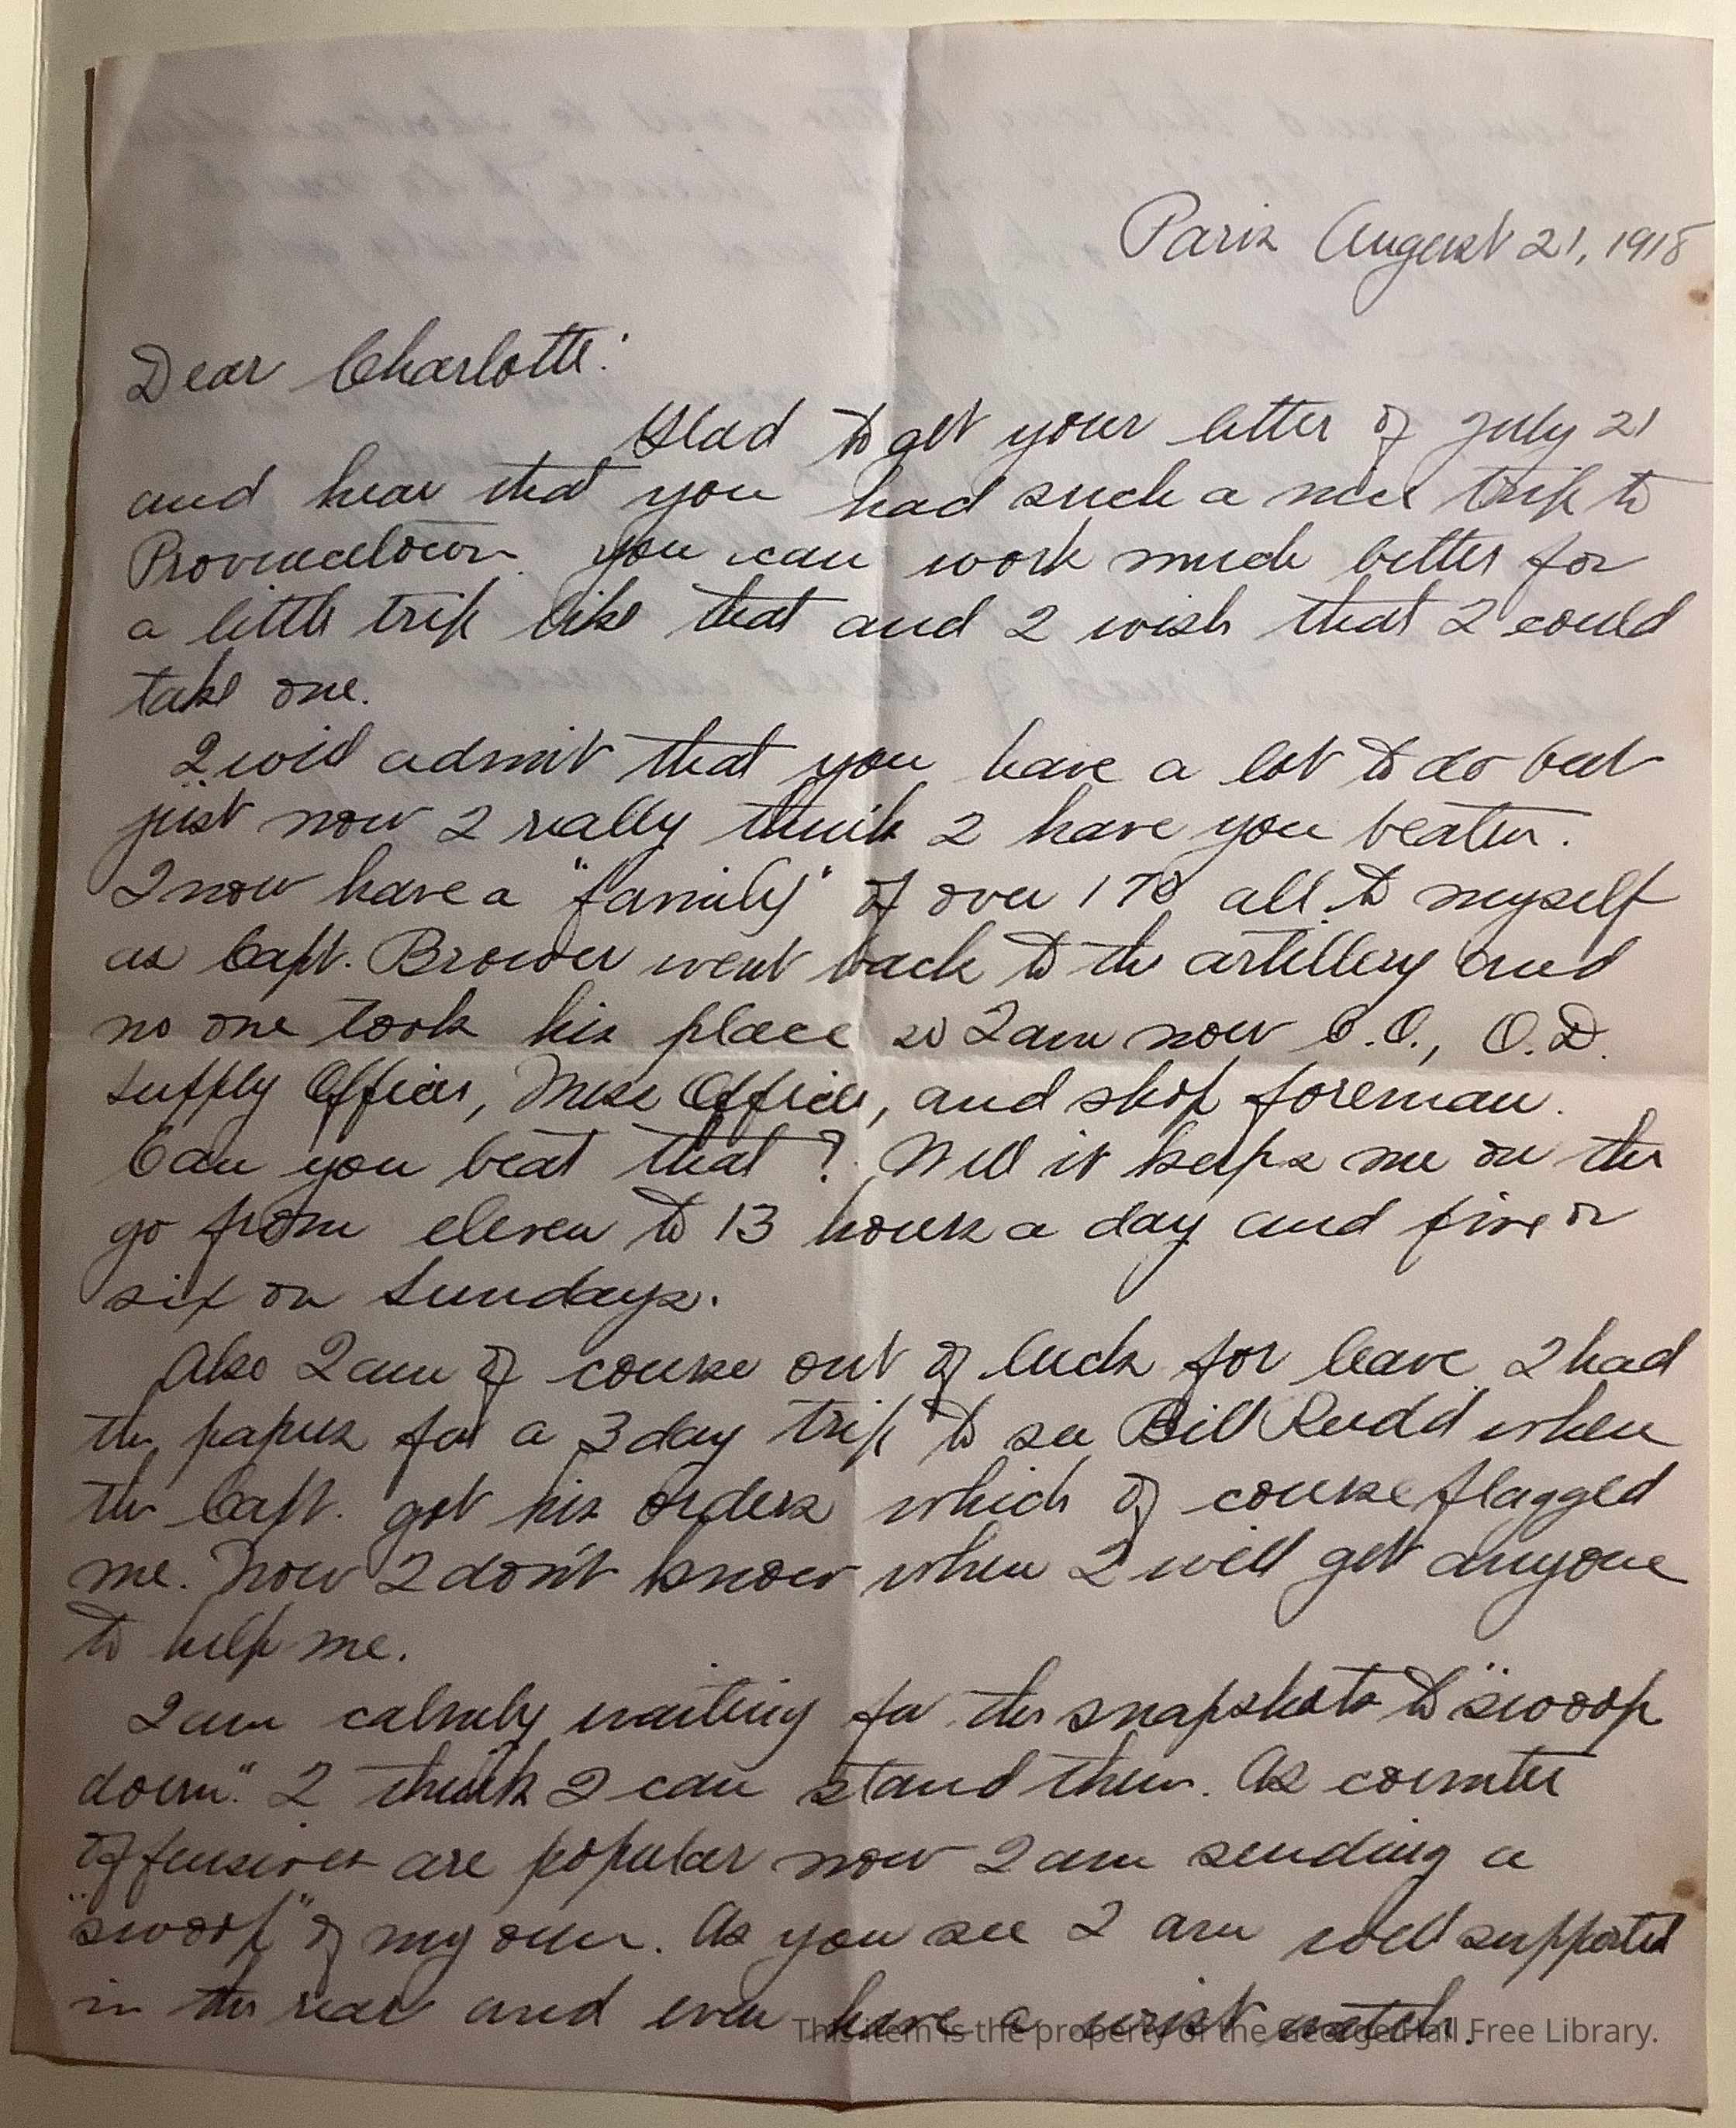 Paris August 21, 1918
Dear Charlotte:
Glad to get your letter of July 21
and hear that you had such a nice trip to
Provincetown. You can work much better for
a little trip like that and I wish that I could
take one.
I will admit that you have a lot to do but
just now I really think I have you beaten.
I now have a "family" of over 170 all to myself
as Capt. Brower went back to the artillery and
no one took his place so I am now C.O., O.D.
Supply Officer, Mess Officer, and shop foreman.
Can you beat that? Well it keeps me on the
go from eleven to 13 hours a day and five or
six on Sundays.
Also I am of course out of luck for leave. I had
the papers for a 3 day trip to see Bill Rudd when
the Capt. got his orders which of course flagged
me. Now I don't know when I will get anyone
to help me.
I am calmly waiting for the snapshots to "swoop
down." I think I can stand them. As counter
offensives are popular now I am sending a
"swoop" of my own. As you see I am well supported
in the rear and even have a wrist watch.
This item is the property of the George Hall Free Library.